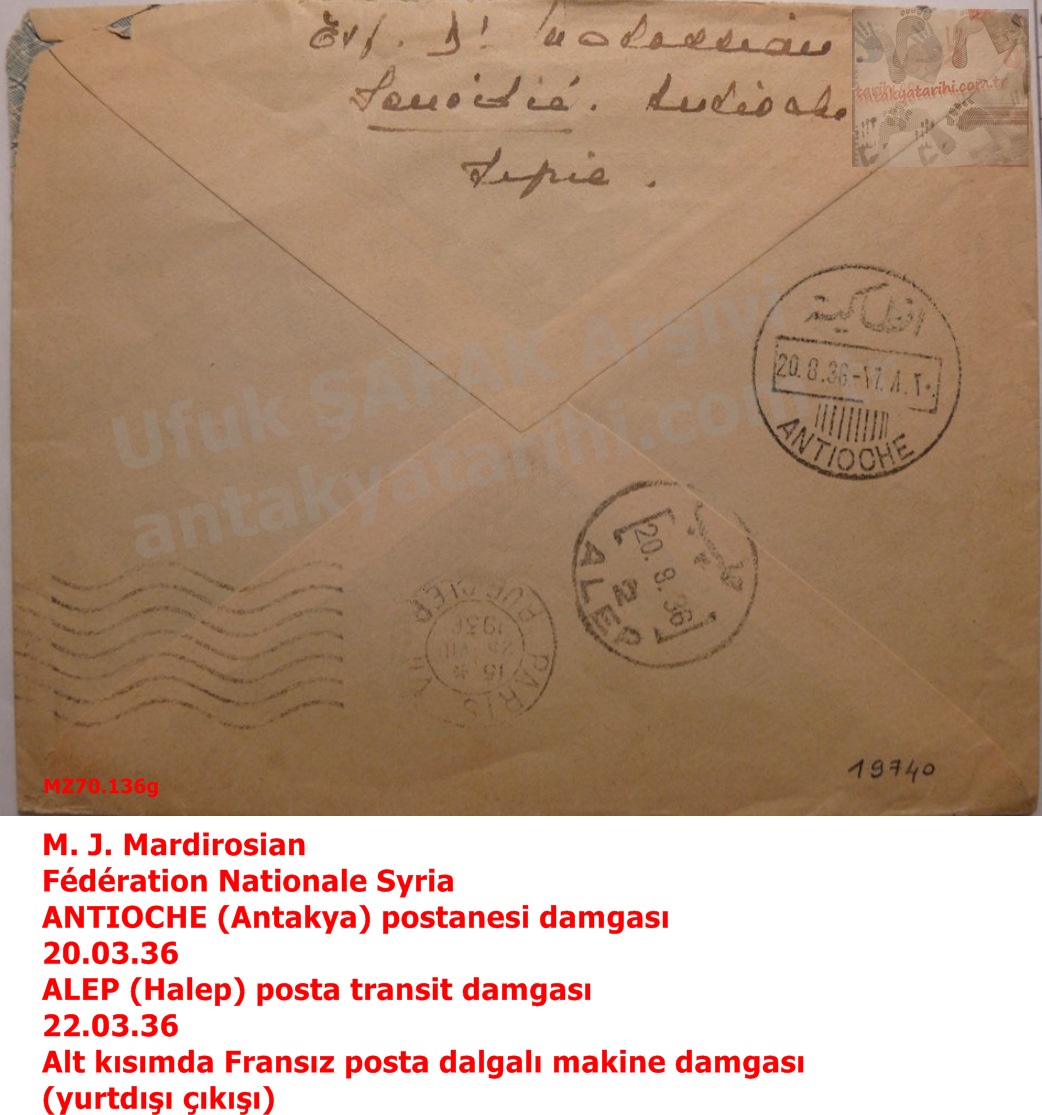 Exp. Dr
Antioche
Syrie.
antakyatarihi.com.tr
انطاكية
20.8.36-٣٦.٨.٢٠
ANTIOCHE
Ufuk ŞAFAK Arşivi
antakyatarihi.com
حلب
20.8.36
2
ALEP
PARIS VII
15
VIII
1936
19740
MZ70.136g
M. J. Mardirosian
Fédération Nationale Syria
ANTIOCHE (Antakya) postanesi damgası
20.03.36
ALEP (Halep) posta transit damgası
22.03.36
Alt kısımda Fransız posta dalgalı makine damgası
(yurtdışı çıkışı)